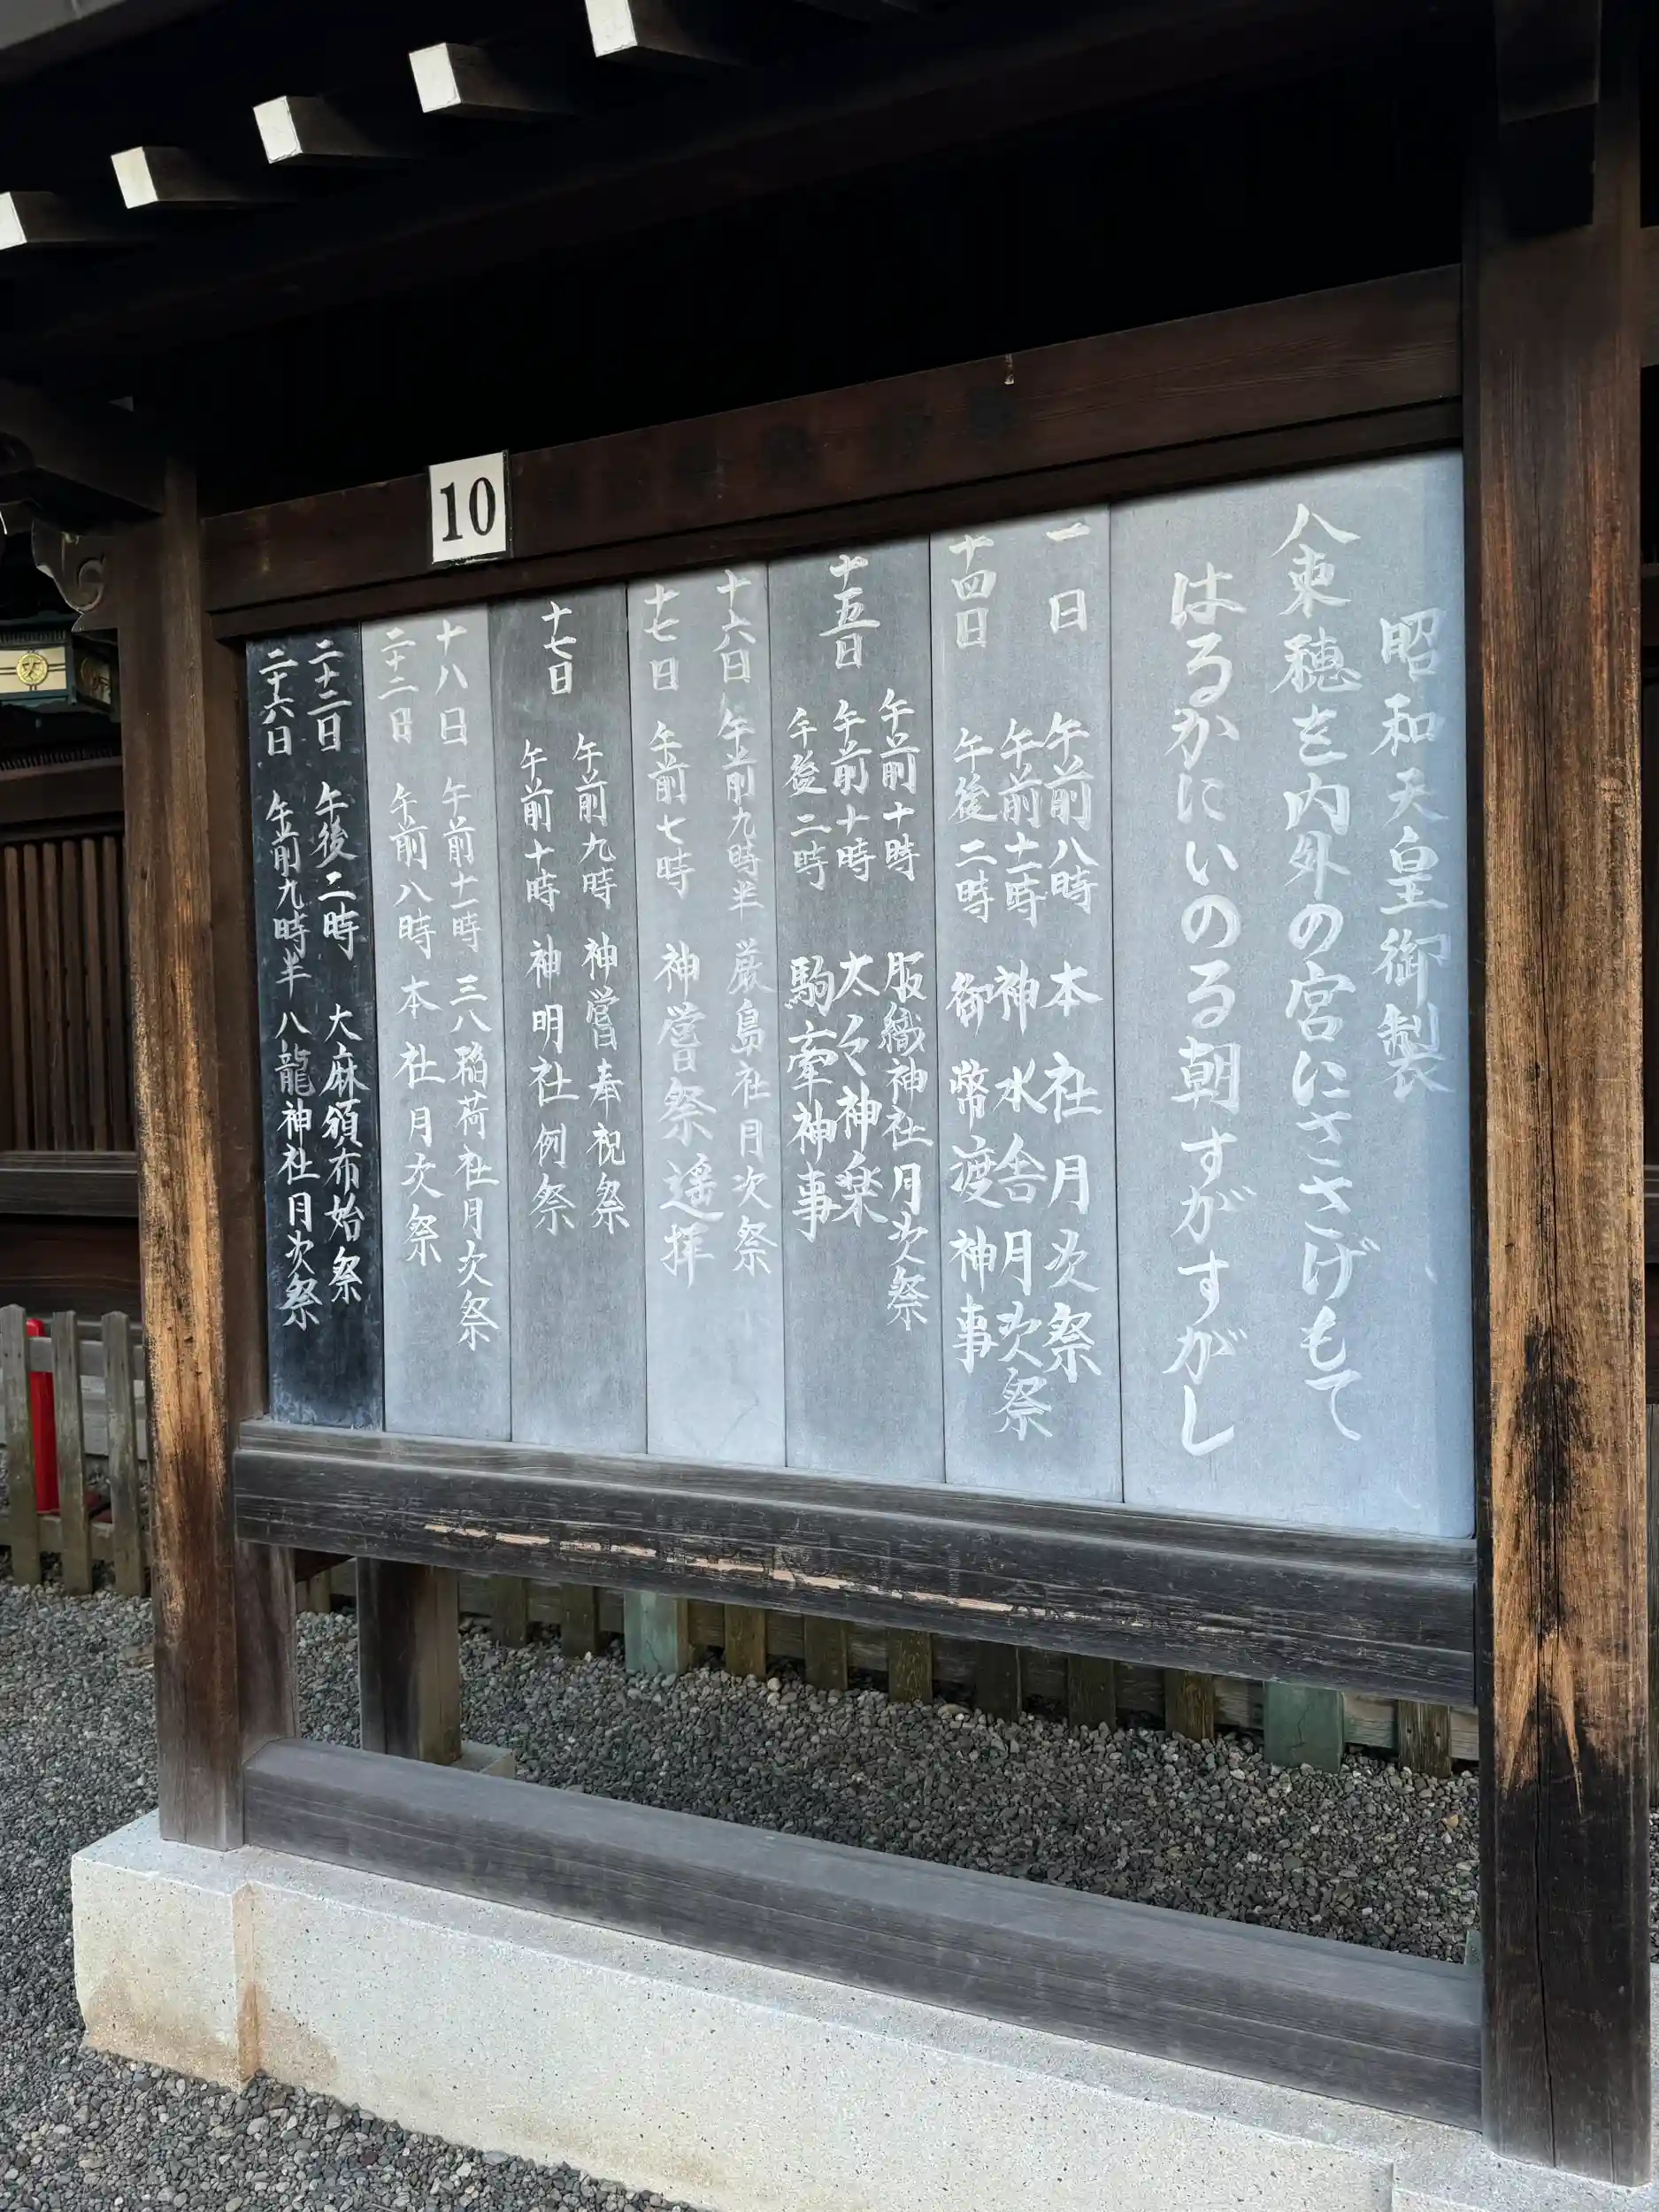 10
昭和天皇御製
八束穂を内外の宮にささげもて
はるかにいのる朝すがすがし
一日 午前八時 本社月次祭
午前十一時 神水舎月次祭
十四日 午後二時 御幣渡神事
十五日 午前十時 服織神社月次祭
午前十時 太々神楽
午後二時 駒牽神事
十六日 午前九時半 厳島社月次祭
十七日 午前七時 神嘗祭遥拝
十七日 午前九時 神嘗奉祝祭
午前十時 神明社例祭
十八日 午前十一時 三八稲荷社月次祭
二十二日 午前八時 本社月次祭
二十二日 午後二時 大麻頒布始祭
二十六日 午前九時半 八龍神社月次祭